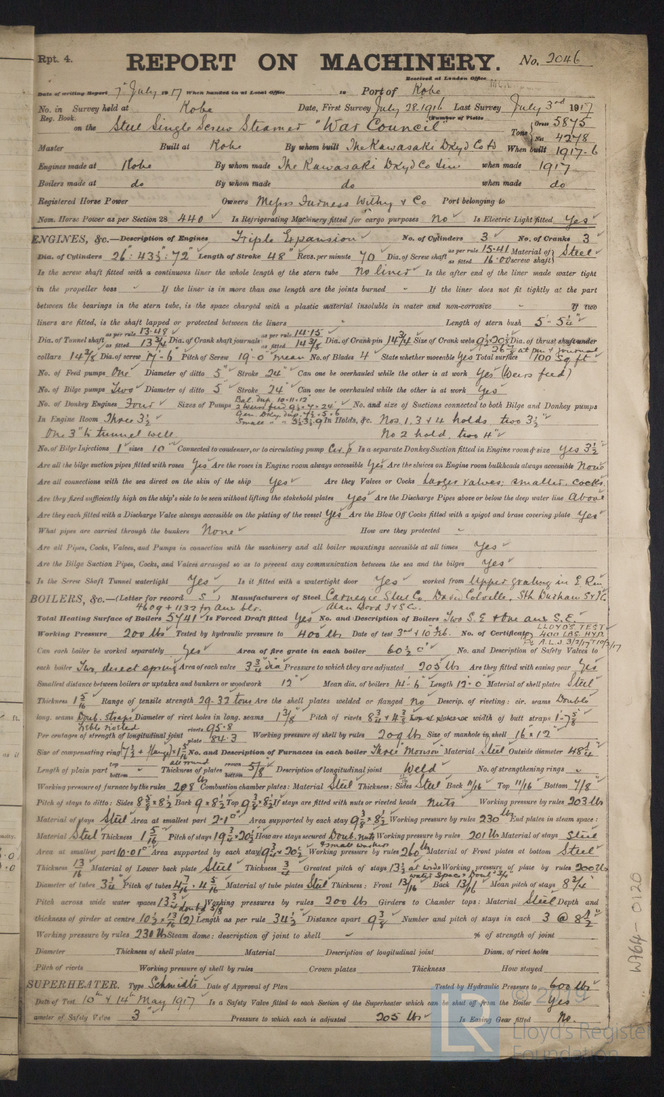 Rpt. 4.
REPORT ON MACHINERY.
No. 2046
Received at London Office
Date of writing Report 7th July 1917 When handed in at Local Office 19 Port of Kobe
No. in Survey held at Kobe Date, First Survey July 28. 1916 Last Survey July 3rd 1917
Reg. Book. (Number of Visits
on the Steel Single Screw Steamer "War Council" Tons Gross 5875
Net 4278
Master Built at Kobe By whom built The Kawasaki Dkyd Co Ld When built 1917-6
Engines made at Kobe By whom made The Kawasaki Dkyd Co when made 1917
Boilers made at do By whom made do when made do
Registered Horse Power Owners Messrs Furness Withy & Co Port belonging to
Nom. Horse Power as per Section 28 440 Is Refrigerating Machinery fitted for cargo purposes No Is Electric Light fitted Yes
ENGINES, &c.—Description of Engines Triple Expansion No. of Cylinders 3 No. of Cranks 3
Dia. of Cylinders 26": 43½": 72" Length of Stroke 48 Revs. per minute 70 Dia. of Screw shaft as per rule 15.41 as fitted 16.00 Material of screw shaft Steel
Is the screw shaft fitted with a continuous liner the whole length of the stern tube No liner Is the after end of the liner made water tight
in the propeller boss - If the liner is in more than one length are the joints burned - If the liner does not fit tightly at the part
between the bearings in the stern tube, is the space charged with a plastic material insoluble in water and non-corrosive - If two
liners are fitted, is the shaft lapped or protected between the liners Length of stern bush 5'-5¼"
Dia. of Tunnel shaft as per rule 13.49 as fitted 13¾ Dia. of Crank shaft journals as per rule 14.15 as fitted 14⅜ Dia. of Crank pin 14¾ Size of Crank webs Dia. of thrust shaft under
collars 14⅜ Dia. of screw 17'-6" Pitch of Screw 19-0 mean No. of Blades 4 State whether moveable Yes Total surface 100 sq ft
No. of Feed pumps One Diameter of ditto 5" Stroke 24" Can one be overhauled while the other is at work Yes (Weirs feed)
No. of Bilge pumps Two Diameter of ditto 5" Stroke 24" Can one be overhauled while the other is at work Yes
No. of Donkey Engines Four Sizes of Pumps No. and size of Suctions connected to both Bilge and Donkey pumps
In Engine Room Three 3½ In Holds, &c. Nos 1, 3 & 4 holds two 3½"
One 3" to tunnel well No 2 hold, two 4"
No. of Bilge Injections 1 sizes 10" Connected to condenser, or to circulating pump Cir. p Is a separate Donkey Suction fitted in Engine room & size Yes 3½
Are all the bilge suction pipes fitted with roses Yes Are the roses in Engine room always accessible Yes Are the sluices on Engine room bulkheads always accessible None
Are all connections with the sea direct on the skin of the ship Yes Are they Valves or Cocks Larger valves, smaller, cocks
Are they fixed sufficiently high on the ship's side to be seen without lifting the stokehold plates Yes Are the Discharge Pipes above or below the deep water line Above
Are they each fitted with a Discharge Valve always accessible on the plating of the vessel Yes Are the Blow Off Cocks fitted with a spigot and brass covering plate Yes
What pipes are carried through the bunkers None How are they protected -
Are all Pipes, Cocks, Valves, and Pumps in connection with the machinery and all boiler mountings accessible at all times Yes
Are the Bilge Suction Pipes, Cocks, and Valves arranged so as to prevent any communication between the sea and the bilges Yes
Is the Screw Shaft Tunnel watertight Yes Is it fitted with a watertight door Yes worked from Upper grating in E Rm
BOILERS, &c.—(Letter for record S) Manufacturers of Steel Carnegie Steel Co. David Colville, Sth Durham
4609 + 1132 for Aux blr.
Total Heating Surface of Boilers 5741 Is Forced Draft fitted Yes No. and Description of Boilers Two S.E & One aux S.E.
Working Pressure 200 lbs Tested by hydraulic pressure to 400 lbs Date of test 3rd & 10 Feb. No. of Certificate LLOYD'S TEST 400 LBS. HYD.
Can each boiler be worked separately Yes Area of fire grate in each boiler 60½ No. and Description of Safety Valves to
each boiler Two, direct spring Area of each valve 3¾ dia Pressure to which they are adjusted 205 lbs Are they fitted with easing gear Yes
Smallest distance between boilers or uptakes and bunkers or woodwork 12" Mean dia. of boilers 14'-6 Length 12'-0" Material of shell plates Steel
Thickness 1 5/16 Range of tensile strength 29-32 tons Are the shell plates welded or flanged No Descrip. of riveting: cir. seams Double
long. seams Doub. straps Treble riveted Diameter of rivet holes in long. seams 1⅜ Pitch of rivets Lap of plates or width of butt straps
Per centages of strength of longitudinal joint rivets 95.8 plate 84.3 Working pressure of shell by rules 209 lbs Size of manhole in shell 16 x 12
Size of compensating ring No. and Description of Furnaces in each boiler Three Morison Material Steel Outside diameter 48¼"
Length of plain part top bottom Thickness of plates crown bottom 5/8 Description of longitudinal joint Weld No. of strengthening rings -
Working pressure of furnace by the rules 208 lbs Combustion chamber plates: Material Steel Thickness: Sides Back 11/16 Top 11/16 Bottom 7/8
Pitch of stays to ditto: Sides 8¾ x 8½ Back 9 x 8½ Top If stays are fitted with nuts or riveted heads Nuts Working pressure by rules 203 lbs
Material of stays Steel Area at smallest part 2.10 Area supported by each stay Working pressure by rules 230 lbs End plates in steam space:
Material Steel Thickness 1 5/16 Pitch of stays How are stays secured Doub. nuts Working pressure by rules 201 lbs Material of stays Steel
Area at smallest part 10.01 Area supported by each stay Working pressure by rules 260 lbs Material of Front plates at bottom Steel
Thickness 13/16 Material of Lower back plate Steel Thickness ¾ Greatest pitch of stays Working pressure of plate by rules 200 lbs
Diameter of tubes 3¼ Pitch of tubes Material of tube plates Steel Thickness: Front 13/16 Back 13/16 Mean pitch of stays 8¾
Pitch across wide water spaces 13¾ Working pressures by rules 200 lbs Girders to Chamber tops: Material Steel Depth and
thickness of girder at centre Length as per rule 34½ Distance apart 9⅜ Number and pitch of stays in each 3 @ 8½
Working pressure by rules 230 lbs Steam dome: description of joint to shell % of strength of joint
Diameter Thickness of shell plates Material Description of longitudinal joint Diam. of rivet holes
Pitch of rivets Working pressure of shell by rules Crown plates Thickness How stayed
SUPERHEATER. Type Schmidts Date of Approval of Plan Tested by Hydraulic Pressure to 600 lbs
Date of Test 10th & 14th May 1917 Is a Safety Valve fitted to each Section of the Superheater which can be shut off from the Boiler Yes
ameter of Safety Valve 3" Pressure to which each is adjusted 205 lbs Is Easing Gear fitted No.
W764-0120
LR
Lloyd's Register
Foundation